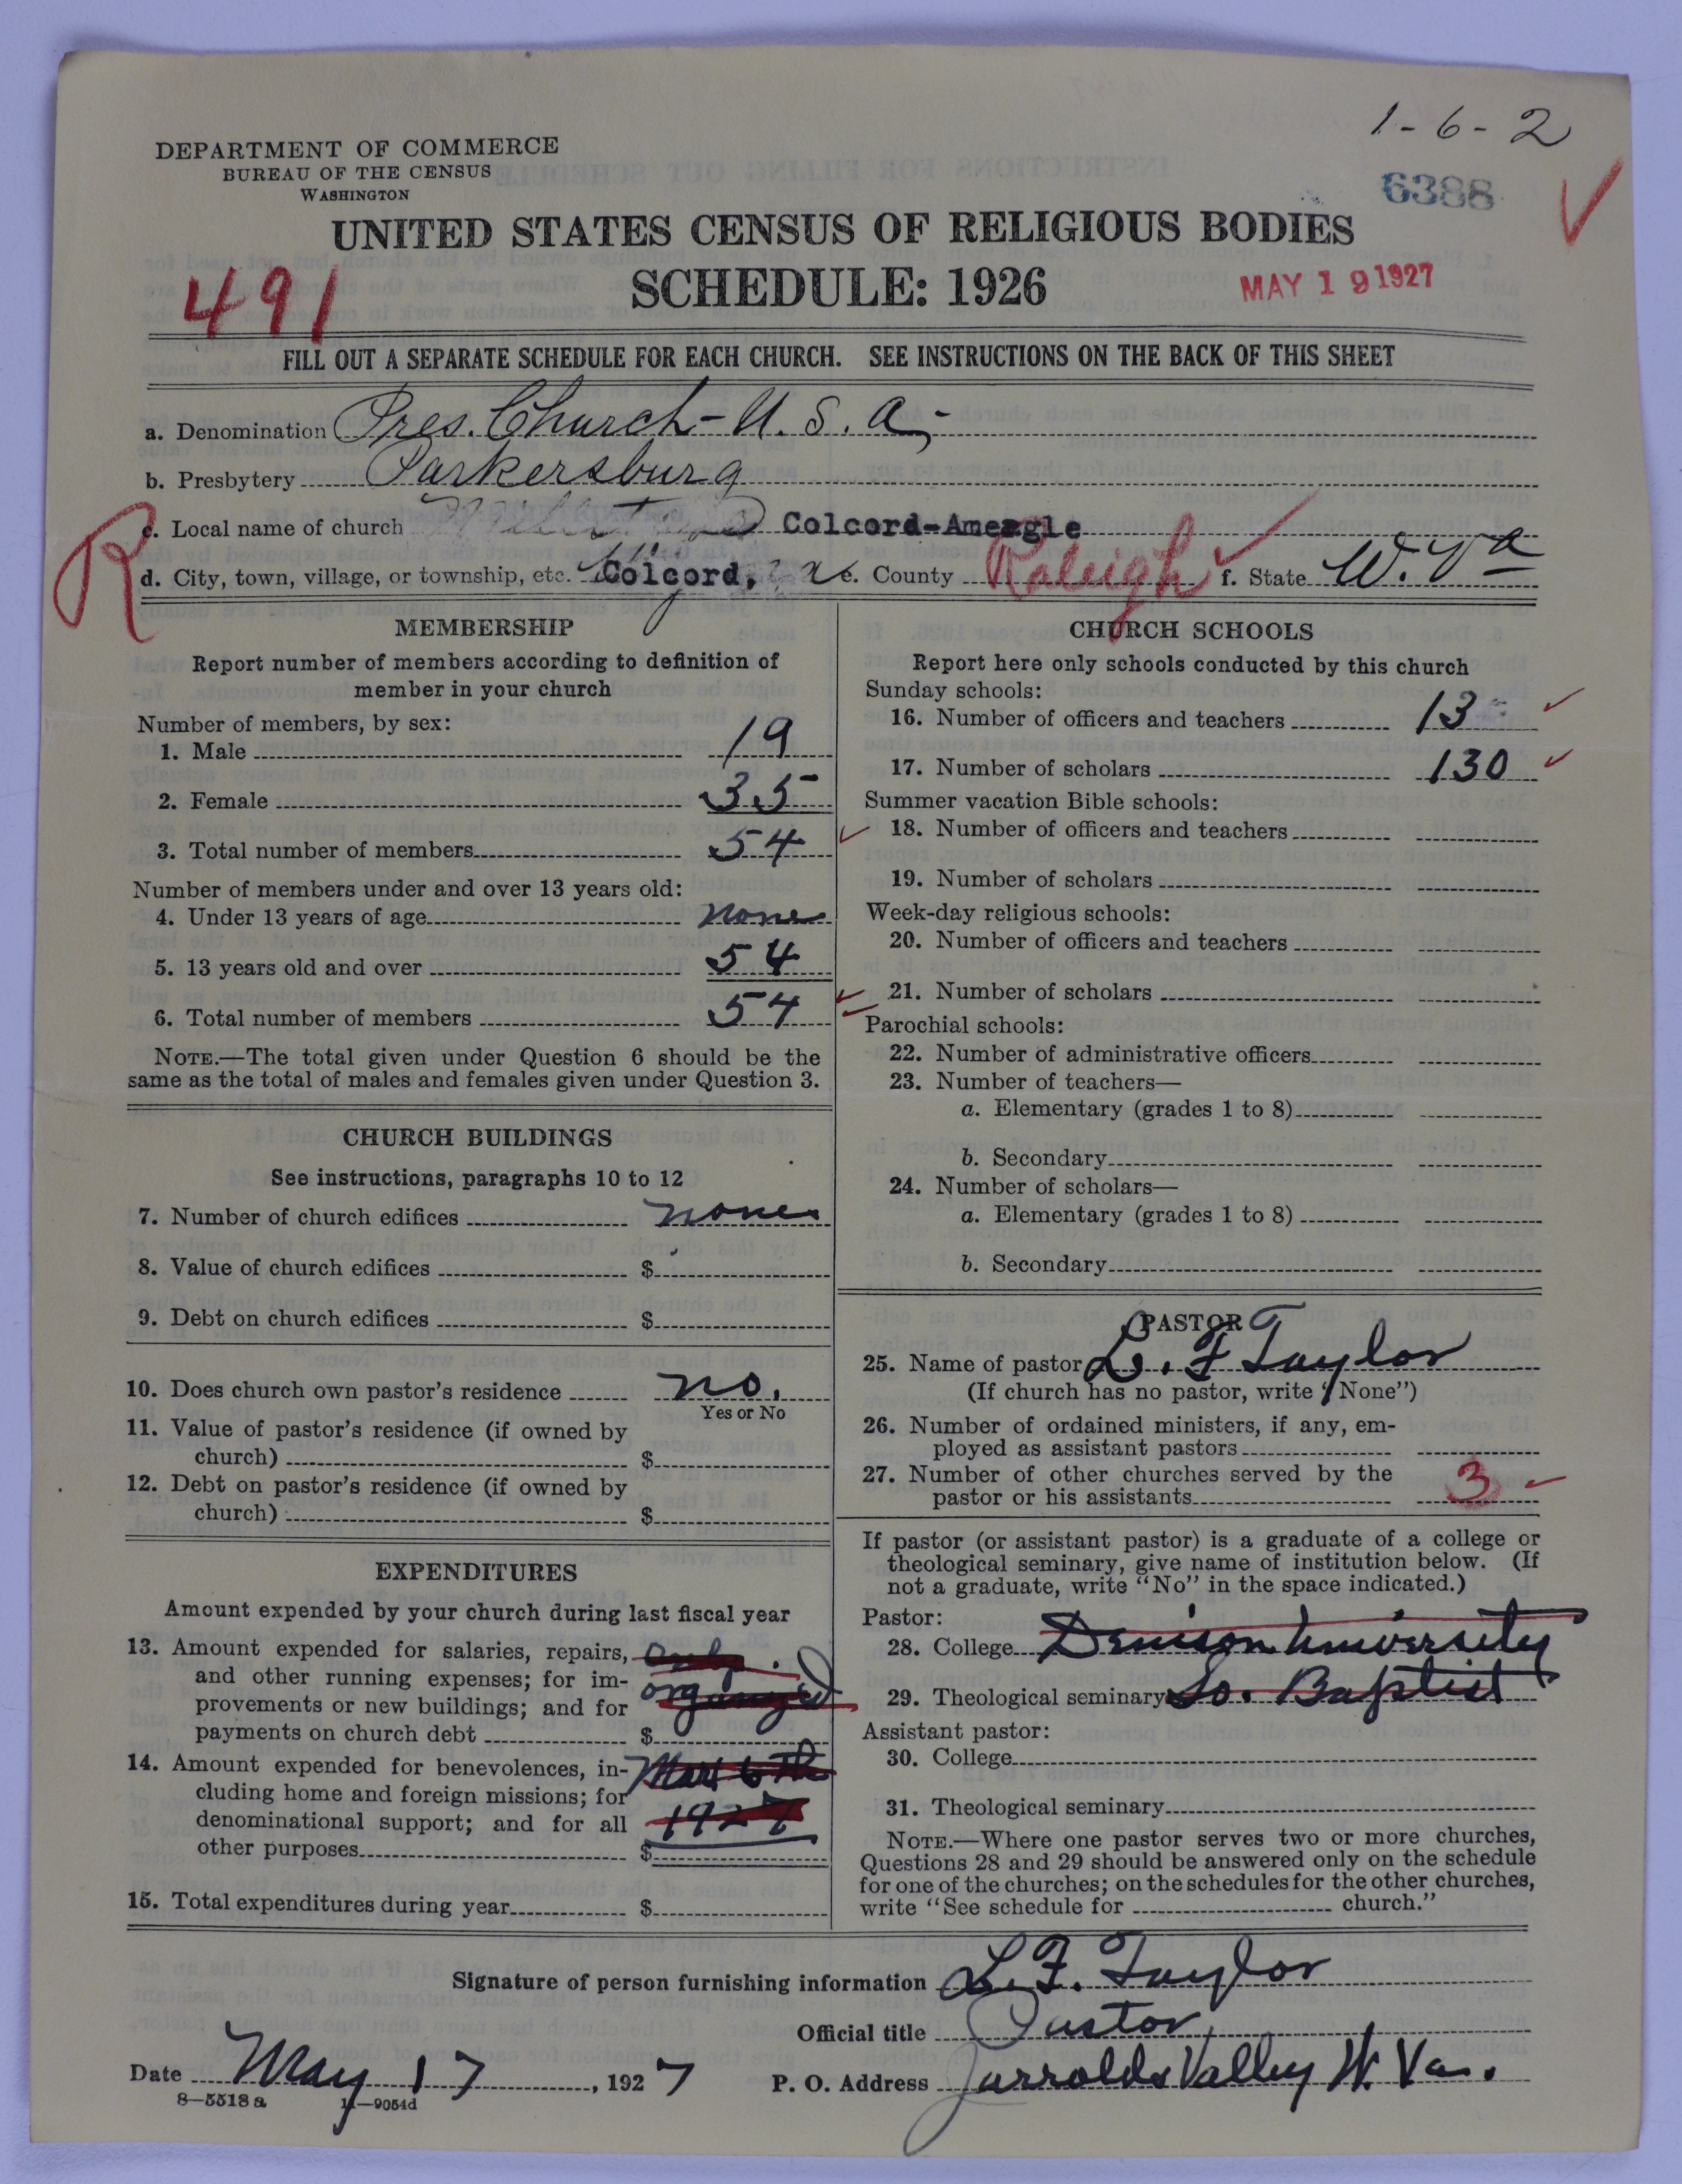 1-6-2
DEPARTMENT OF COMMERCE
BUREAU OF THE CENSUS
WASHINGTON
6388
UNITED STATES CENSUS OF RELIGIOUS BODIES
491
SCHEDULE: 1926
MAY 19 1927
FILL OUT A SEPARATE SCHEDULE FOR EACH CHURCH. SEE INSTRUCTIONS ON THE BACK OF THIS SHEET
a. Denomination Pres. Church - U. S. A. -
b. Presbytery Parkersburg
R
c. Local name of church Colcord-Ameagle
d. City, town, village, or township, etc. Colcord, e. County Raleigh f. State W. Va
MEMBERSHIP
Report number of members according to definition of
member in your church
Number of members, by sex:
1. Male 19
2. Female 35
3. Total number of members 54
Number of members under and over 13 years old:
4. Under 13 years of age none
5. 13 years old and over 54
6. Total number of members 54
NOTE.—The total given under Question 6 should be the
same as the total of males and females given under Question 3.
CHURCH BUILDINGS
See instructions, paragraphs 10 to 12
7. Number of church edifices none
8. Value of church edifices $
9. Debt on church edifices $
10. Does church own pastor's residence no.
Yes or No
11. Value of pastor's residence (if owned by
church) $
12. Debt on pastor's residence (if owned by
church) $
EXPENDITURES
Amount expended by your church during last fiscal year
13. Amount expended for salaries, repairs, Only
and other running expenses; for im-
provements or new buildings; and for organized
payments on church debt $
14. Amount expended for benevolences, in- Mar 6 th
cluding home and foreign missions; for
denominational support; and for all 1927
other purposes $
15. Total expenditures during year $
CHURCH SCHOOLS
Report here only schools conducted by this church
Sunday schools:
16. Number of officers and teachers 13
17. Number of scholars 130
Summer vacation Bible schools:
18. Number of officers and teachers
19. Number of scholars
Week-day religious schools:
20. Number of officers and teachers
21. Number of scholars
Parochial schools:
22. Number of administrative officers
23. Number of teachers—
a. Elementary (grades 1 to 8)
b. Secondary
24. Number of scholars—
a. Elementary (grades 1 to 8)
b. Secondary
PASTOR
25. Name of pastor L. F Taylor
(If church has no pastor, write "None")
26. Number of ordained ministers, if any, em-
ployed as assistant pastors
27. Number of other churches served by the
pastor or his assistants 3
If pastor (or assistant pastor) is a graduate of a college or
theological seminary, give name of institution below. (If
not a graduate, write "No" in the space indicated.)
Pastor:
28. College Denison University
29. Theological seminary So. Baptist
Assistant pastor:
30. College
31. Theological seminary
NOTE.—Where one pastor serves two or more churches,
Questions 28 and 29 should be answered only on the schedule
for one of the churches; on the schedules for the other churches,
write "See schedule for church."
Signature of person furnishing information L. F. Taylor
Official title Pastor
Date May 17, 1927 P. O. Address Jarrolds Valley W. Va.
8—5518a 11—9054d